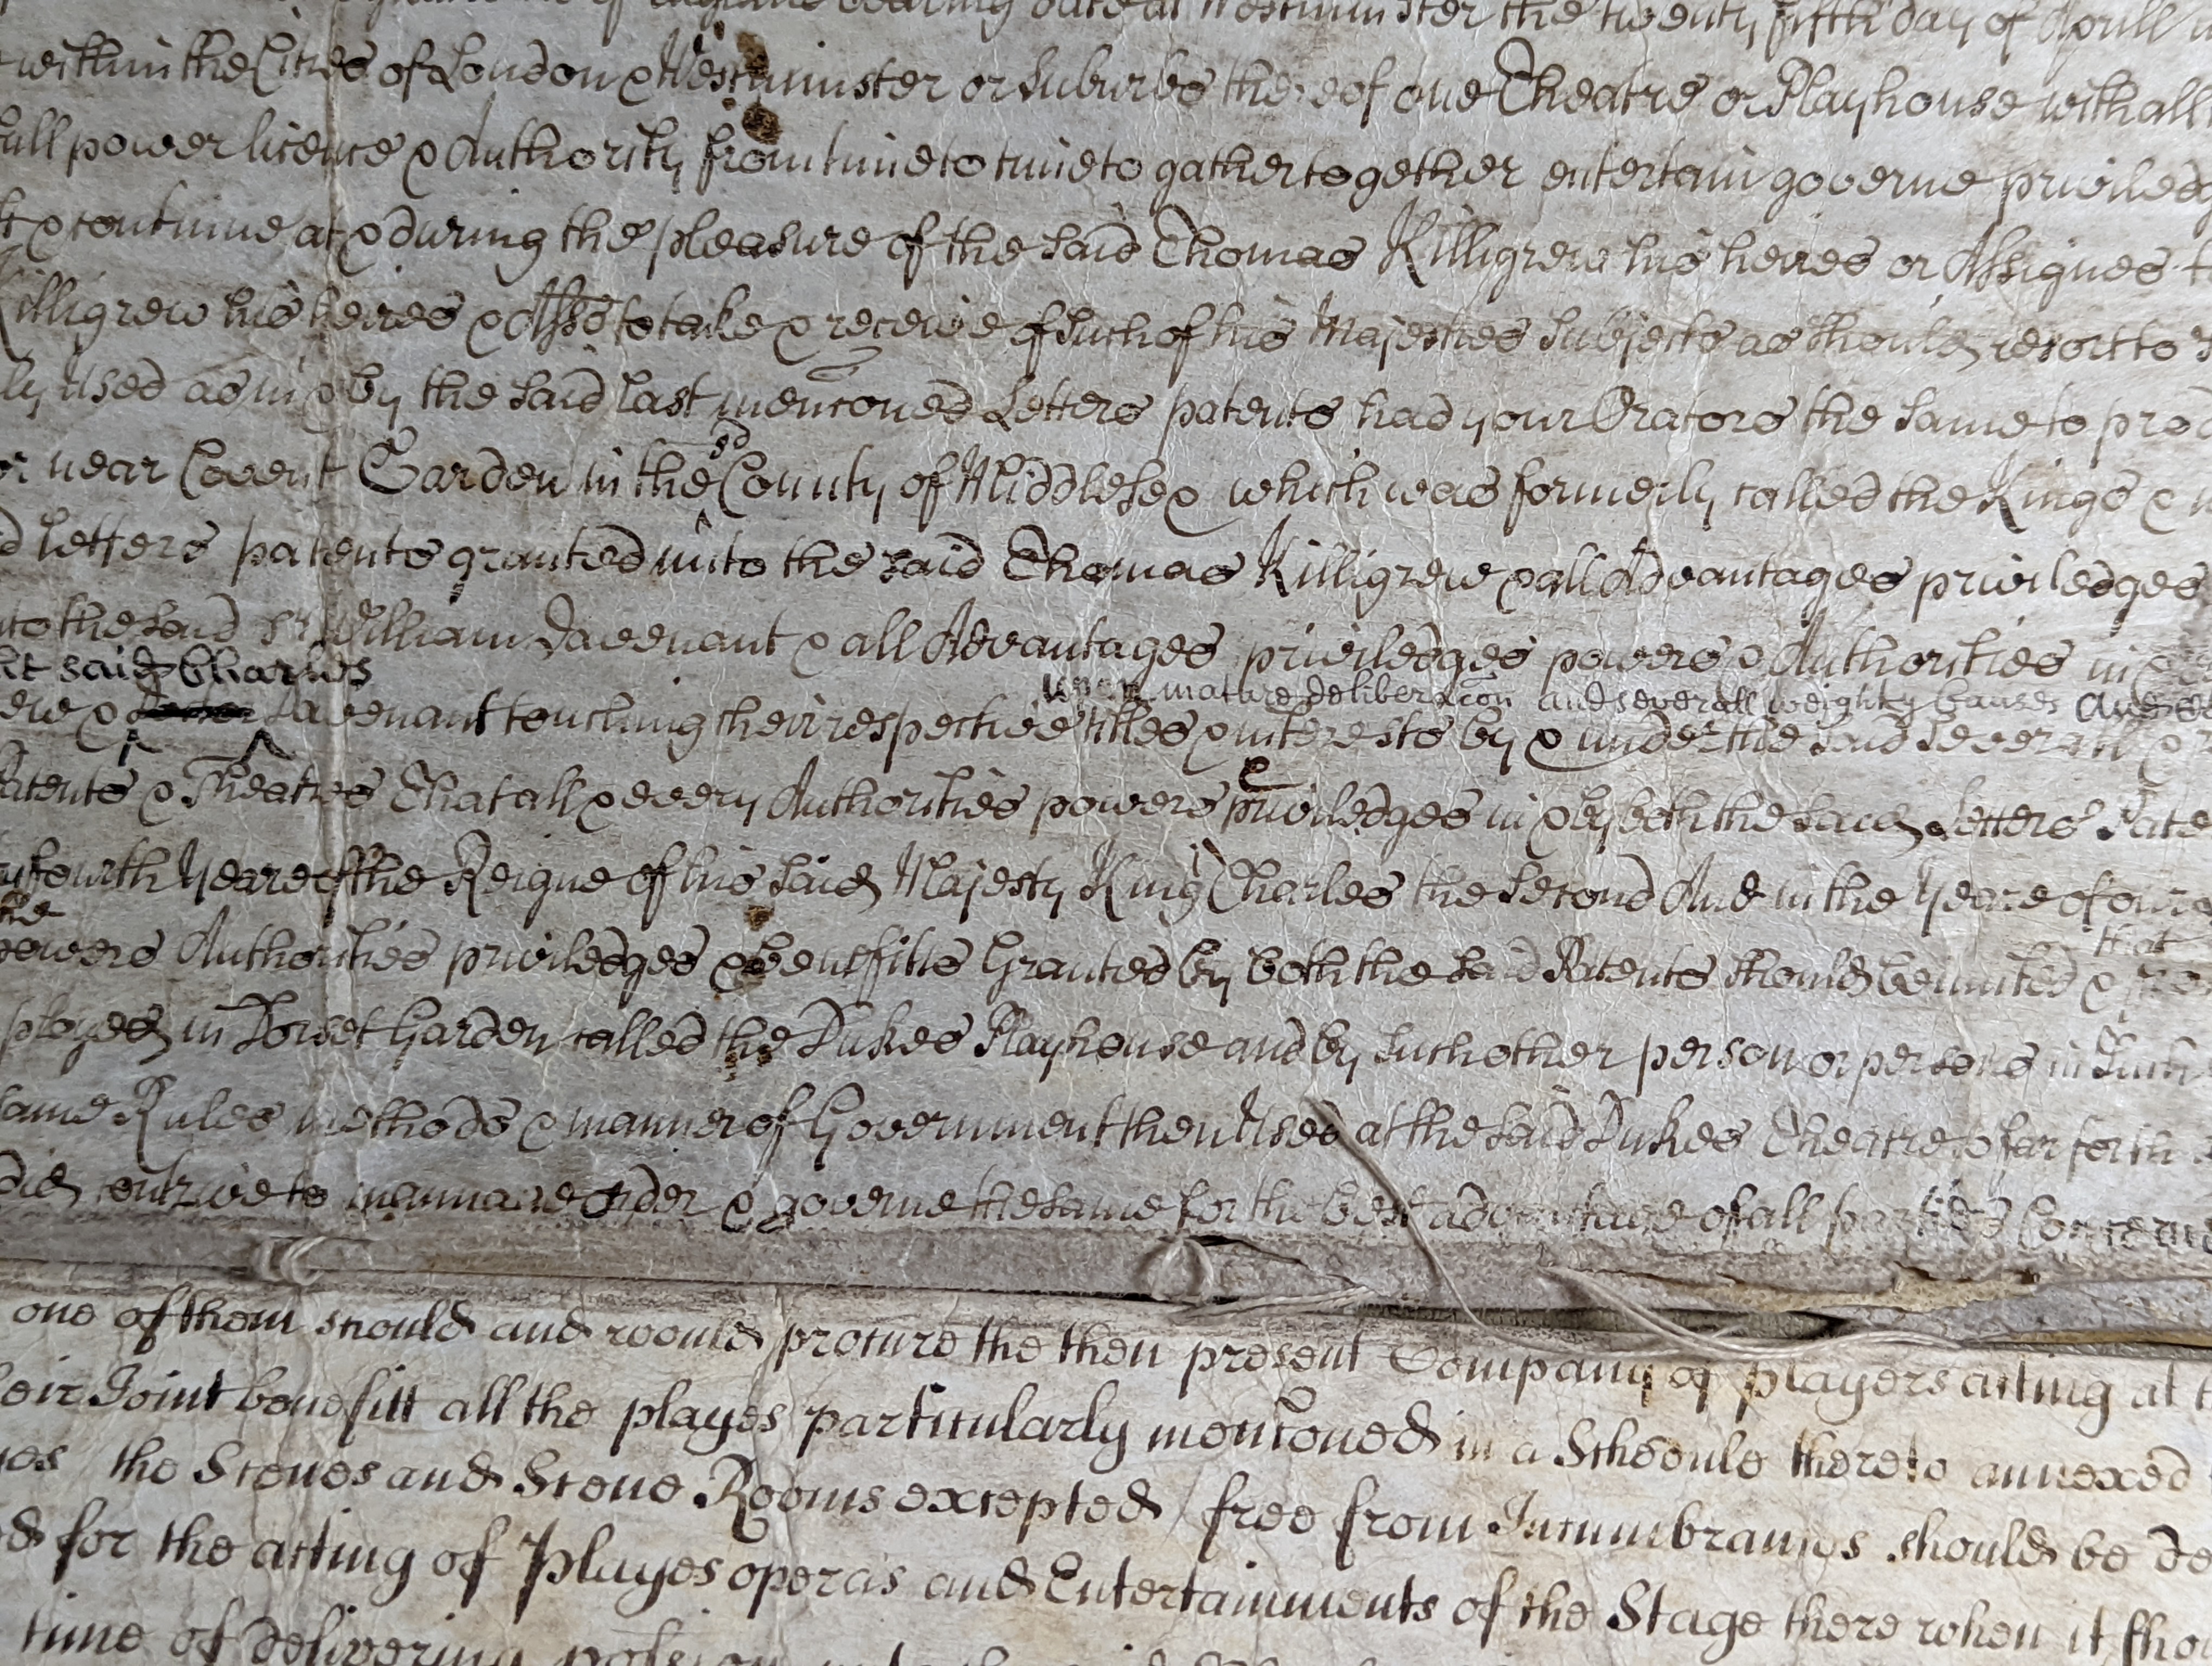 of England bearing date at Westminster the twenty fifth day of Aprill
within the Cities of London & Westminster or Suburbs thereof one Theatre or Playhouse with all
full power licence & Authority from time to time to gather together entertain governe priviledg
& continue at & during the pleasure of the said Thomas Killigrew his heires or Assignes
Killigrew his heires & Asss to take & receive of such of his Majesties Subjects as should resort to
ly used as in & by the said last menconed Letters patents had your Orators the same to pro
or near Covent Garden in the sd County of Middlesex which was formerly called the Kings &
d Letters patents granted unto the said Thomas Killigrew & all Advantages priviledges
to the said Sr William Davenant & all Advantages priviledges powers & Authorities in
said Charles
upon mature deliberacon and severall weighty Causes and
ew & Davenant touching their respective titles & interests by & under the said severall &
Patents & Theatres That all & every Authorities powers priviledges in & by both the said Letters Pate
fourth Yeare of the Reigne of his said Majesty King Charles the Second And in the Yeare of our
the
that
powers Authorities priviledges & benefitts Granted by both the said Patents should be united &
ployed in Dorset Garden called the Dukes Playhouse and by such other person or persons in such
same Rules methods & manner of Government then used at the said Dukes Theatre so far forth
did contrive to mannage order & governe the same for the best advantage of all parties Concerne
one of them should and would procure the then present Company of players acting at
eir Joint benefitt all the playes particularly menconed in a Schedule thereto annexed
the Scenes and Scene Rooms excepted / free from Incumbrances should be de
d for the acting of Playes operas and Entertainments of the Stage there when it sho
time of delivering possession